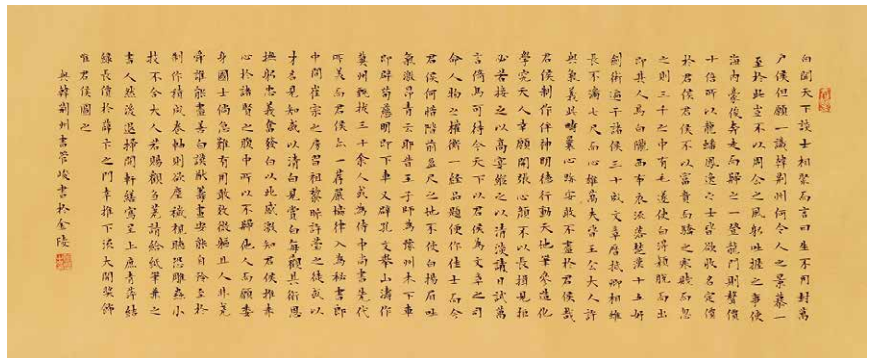 白聞天下談士相聚而言曰生不用封萬
戶侯但願一識韓荊州何令人之景慕一
至於此豈不以周公之風躬吐握之事使
海內豪俊奔走而歸之一登龍門則聲價
十倍所以龍蟠鳳逸之士皆欲收名定價
於君侯君侯不以富貴而驕之寒賤而忽
之則三千之中有毛遂使白得穎脫而出
即其人焉白隴西布衣流落楚漢十五好
劍術遍干諸侯三十成文章歷抵卿相雖
長不滿七尺而心雄萬夫皆王公大人許
與氣義此疇曩心跡安敢不盡於君侯哉
君侯制作侔神明德行動天地筆參造化
學究天人幸願開張心顏不以長揖見拒
必若接之以高宴縱之以清談請日試萬
言倚馬可待今天下以君侯為文章之司
命人物之權衡一經品題便作佳士而今
君侯何惜階前盈尺之地不使白揚眉吐
氣激昂青雲耶昔王子師為豫州未下車
即辟荀慈明既下車又辟孔文舉山濤作
冀州甄拔三十余人或為侍中尚書先代
所美而君侯亦一薦嚴協律入為秘書郎
中間崔宗之房習祖黎昕許瑩之徒或以
才名見知或以清白見賞白每觀其銜恩
撫躬忠義奮發白以此感激知君侯推赤
心於諸賢之腹中所以不歸他人而願委
身國士倘急難有用敢效微軀且人非堯
舜誰能盡善白謨猷籌畫安能自矜至於
制作積成卷軸則欲塵穢視聽恐雕蟲小
技不合大人若賜觀芻蕘請給紙筆兼之
書人然後退掃閒軒繕寫呈上庶青萍結
綠長價於薛卞之門幸推下流大開獎飾
唯君侯圖之
與韓荊州書管峻書於金陵